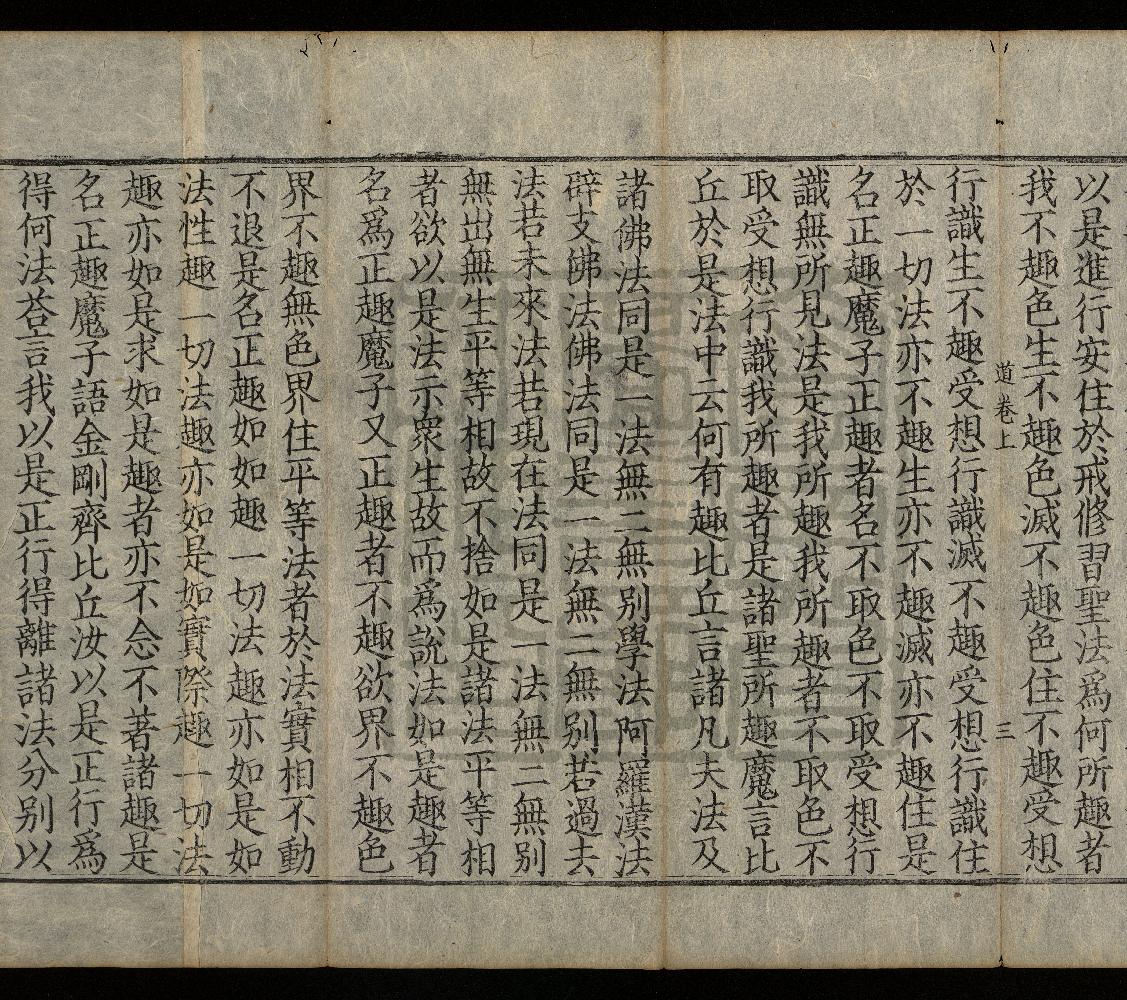 以是進行安住於戒修習聖法爲何所趣者
我不趣色生不趣色滅不趣色住不趣受想
道卷上 三
行識生不趣受想行識滅不趣受想行識住
於一切法亦不趣生亦不趣滅亦不趣住是
名正趣魔子正趣者名不取色不取受想行
識無所見法是我所趣我所趣者不取色不
取受想行識我所趣者是諸聖所趣魔言比
丘於是法中云何有趣比丘言諸凡夫法及
諸佛法同是一法無二無別學法阿羅漢法
辟支佛法佛法同是一法無二無別若過去
法若未來法若現在法同是一法無二無別
無出無生平等相故不捨如是諸法平等相
者欲以是法示衆生故而爲說法如是趣者
名爲正趣魔子又正趣者不趣欲界不趣色
界不趣無色界住平等法者於法實相不動
不退是名正趣如如趣一切法趣亦如是如
法性趣一切法趣亦如是如實際趣一切法
趣亦如是求如是趣者亦不念不著諸趣是
名正趣魔子語金剛齊比丘汝以是正行爲
得何法荅言我以是正行得離諸法分別以